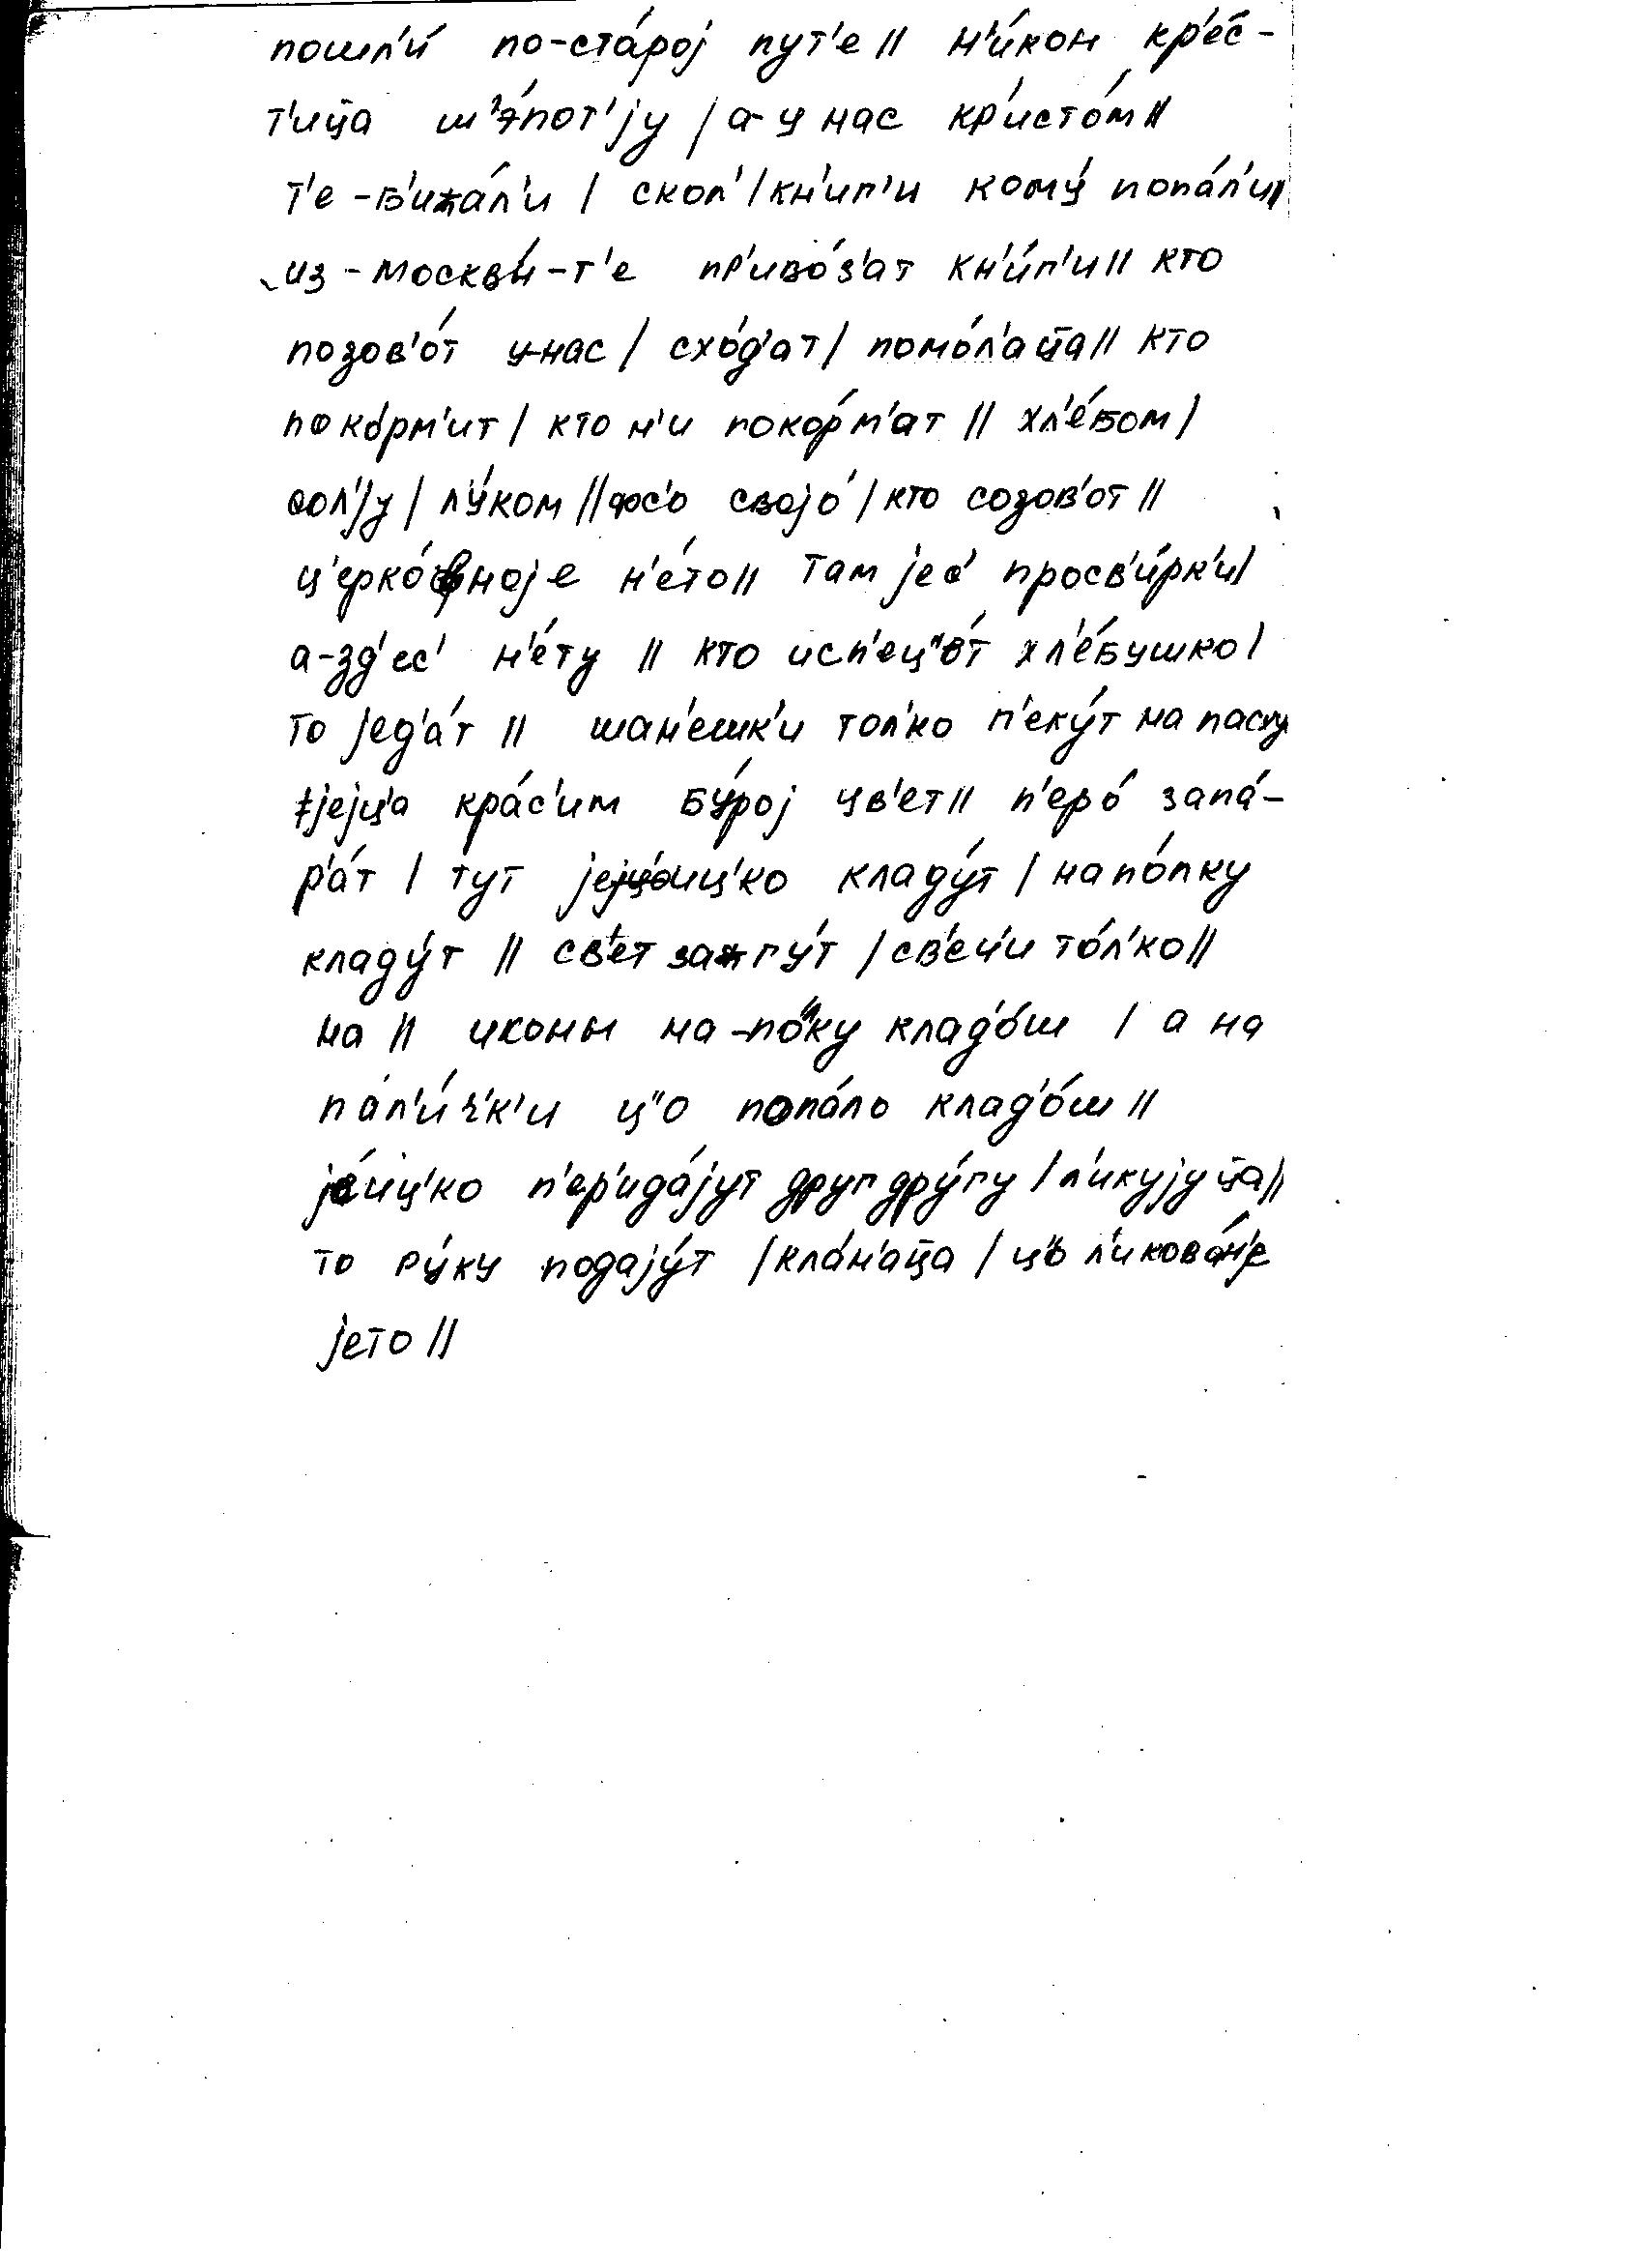 пошл'и́ по-ста́рој пут'е // н'и́кон кр'ес'-
т'ица ш'э́пот'jу / а-у нас кр'исто́м //
т'е-б'ижа́л'и / скол' / кн'иг'и кому́ попа́л'и //
из-москвы́-т'е пр'иво́з'ат кн'и́г'и // кто
позов'о́т у-нас / схо́д'ат / помо́л'аца // кто
поко́рм'ит / кто н'и поко́рм'ат // хл'е́бом /
сол'jу / лу́ком // фс'о својо́ / кто созов'от //
ц'ерко́вноје н'е́то // там јес' просв'и́рк'и /
а-зд'ес' н'е́ту // кто исп'ец"о́т хл'е́бушко /
то јед'а́т // шан'ешк'и тол'ко п'еку́т на пасху
јејца кра́с'им бу́рој цв'ет // п'еро́ запа́-
р'а́т / тут јејиц'ко кладу́т / на по́лку
кладу́т // св'ет зажгу́т / св'еч'и то́л'ко //
на // иконы на-по́лку клад'о́ш / а на
пал'и́ч'к'и ц"о попа́ло клад'о́ш //
је́иц'ко п'ер'ида́јут друг дру́гу / л'икујуца //
то ру́ку подају́т / кла́н'аца / ц"о л'икова́н'је
јето //